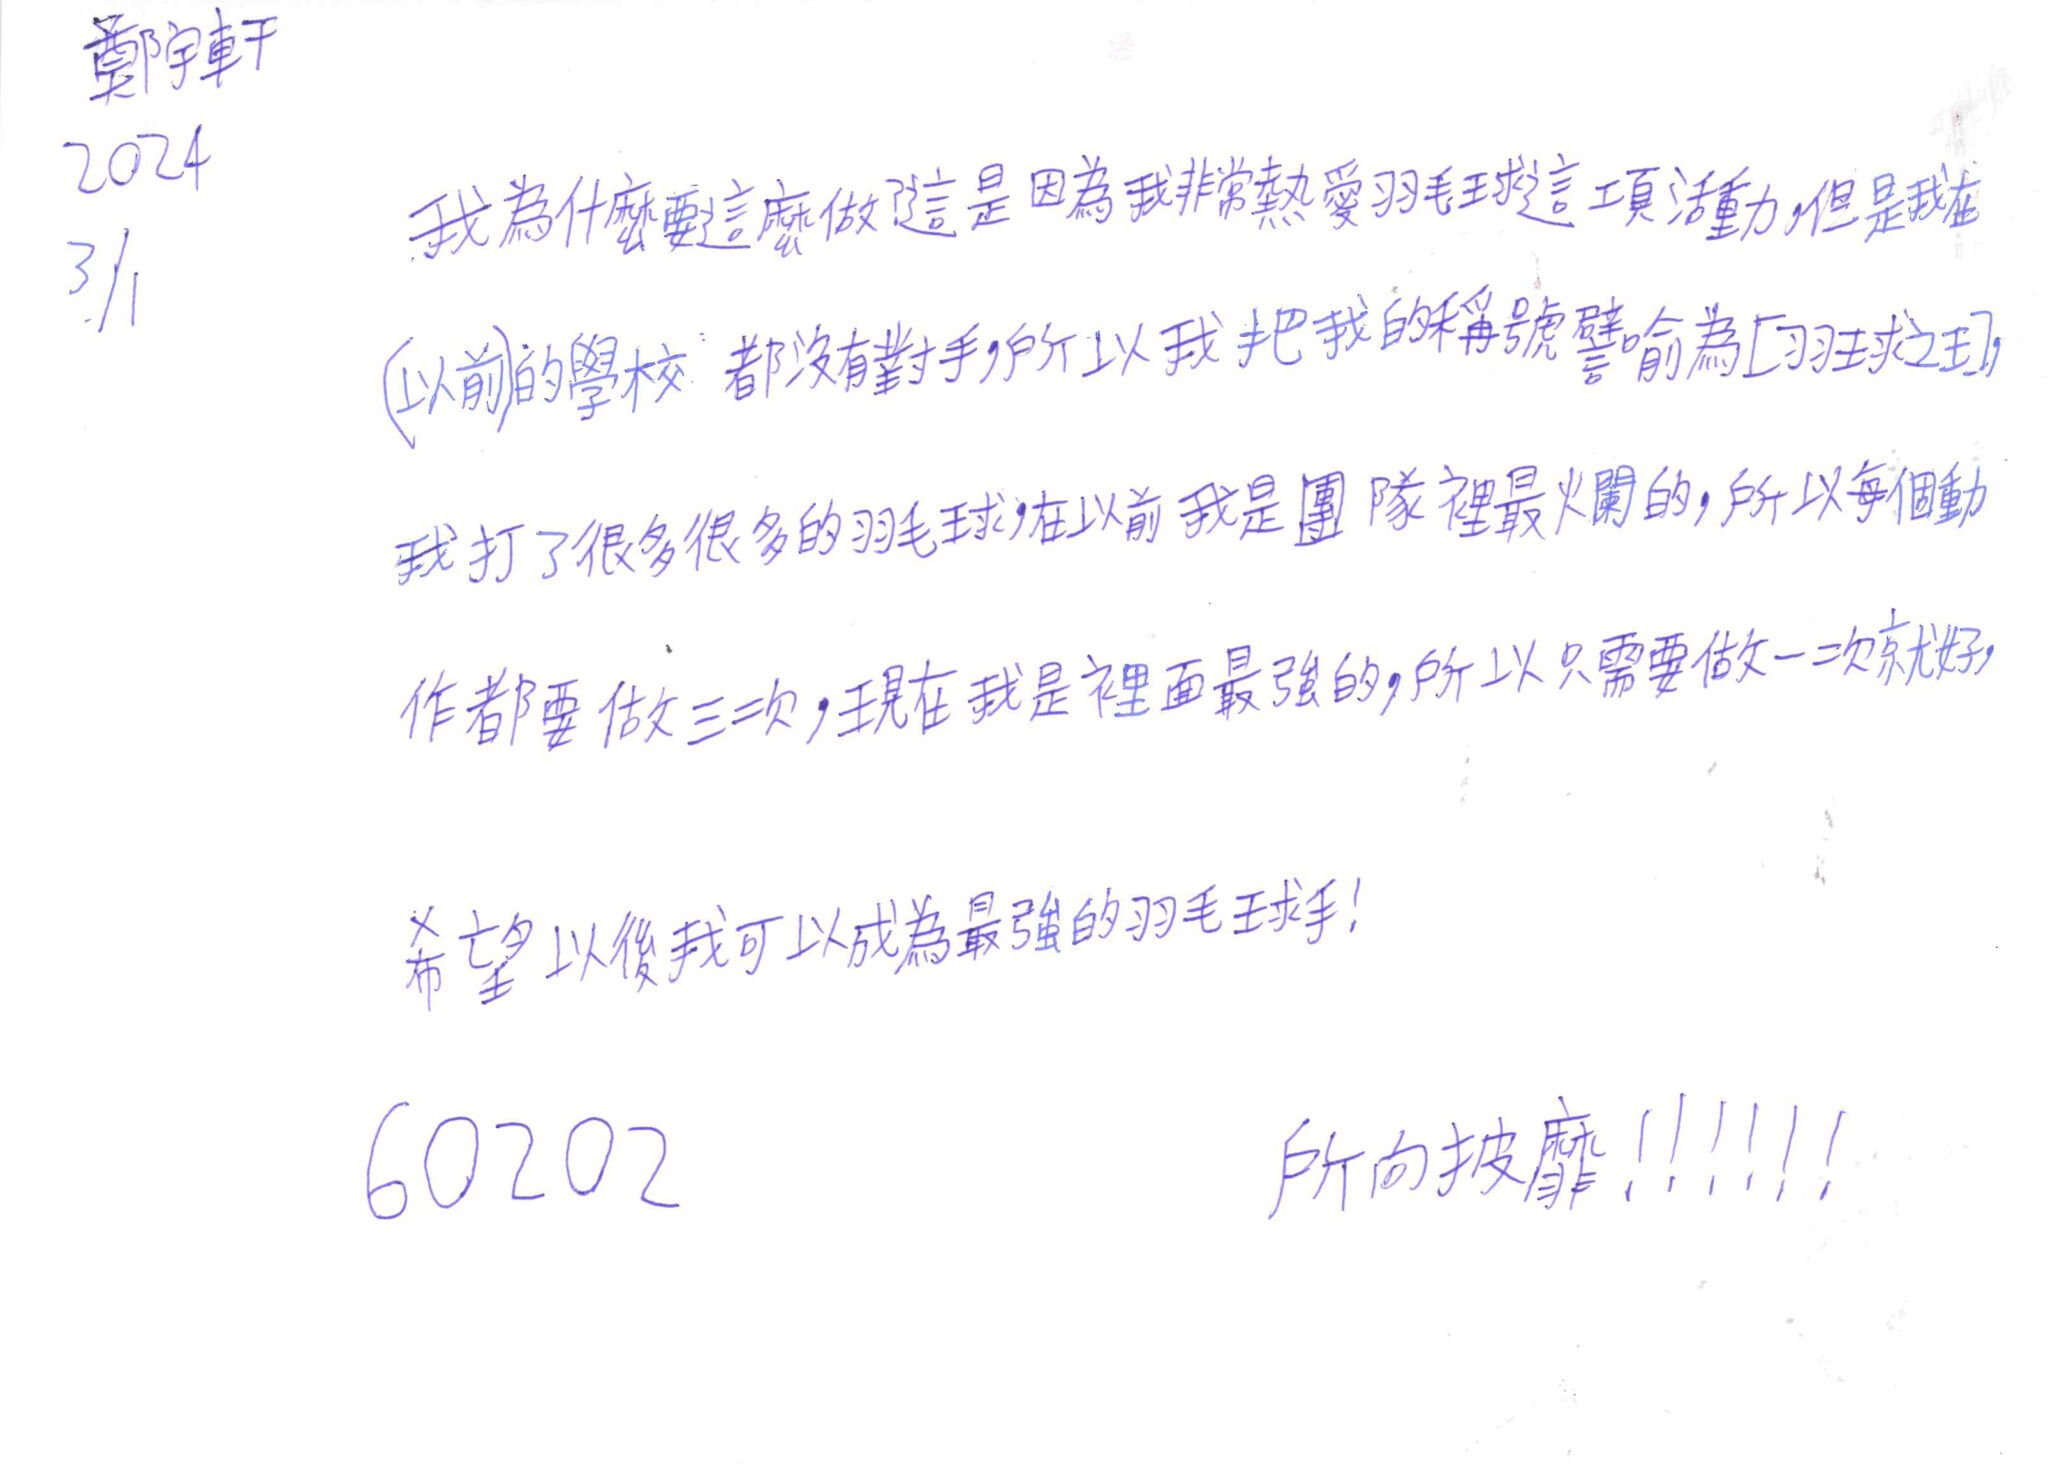 鄭宇軒
2024
3/1
我為什麼要這麼做?這是因為我非常熱愛羽毛球這項活動,但是我在
(以前)的學校都沒有對手,所以我把我的稱號譬喻為[羽球之王],
我打了很多很多的羽毛球,在以前我是團隊裡最爛的,所以每個動
作都要做三次,現在我是裡面最強的,所以只需要做一次就好,
希望以後我可以成為最強的羽毛球手!
60202
所向披靡!!!!!!